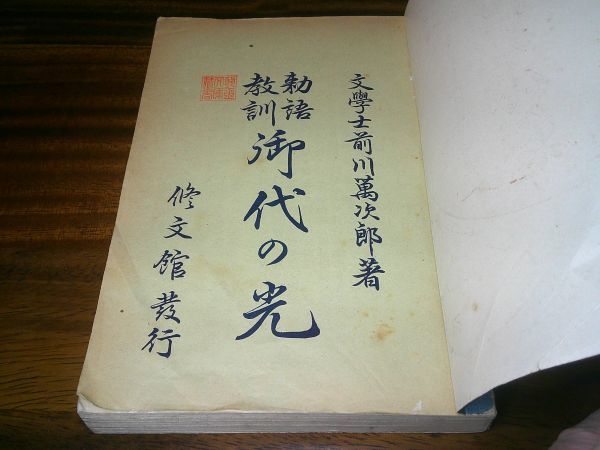 文學士前川萬次郎著
勅語
教訓
御代の光
修文館發行